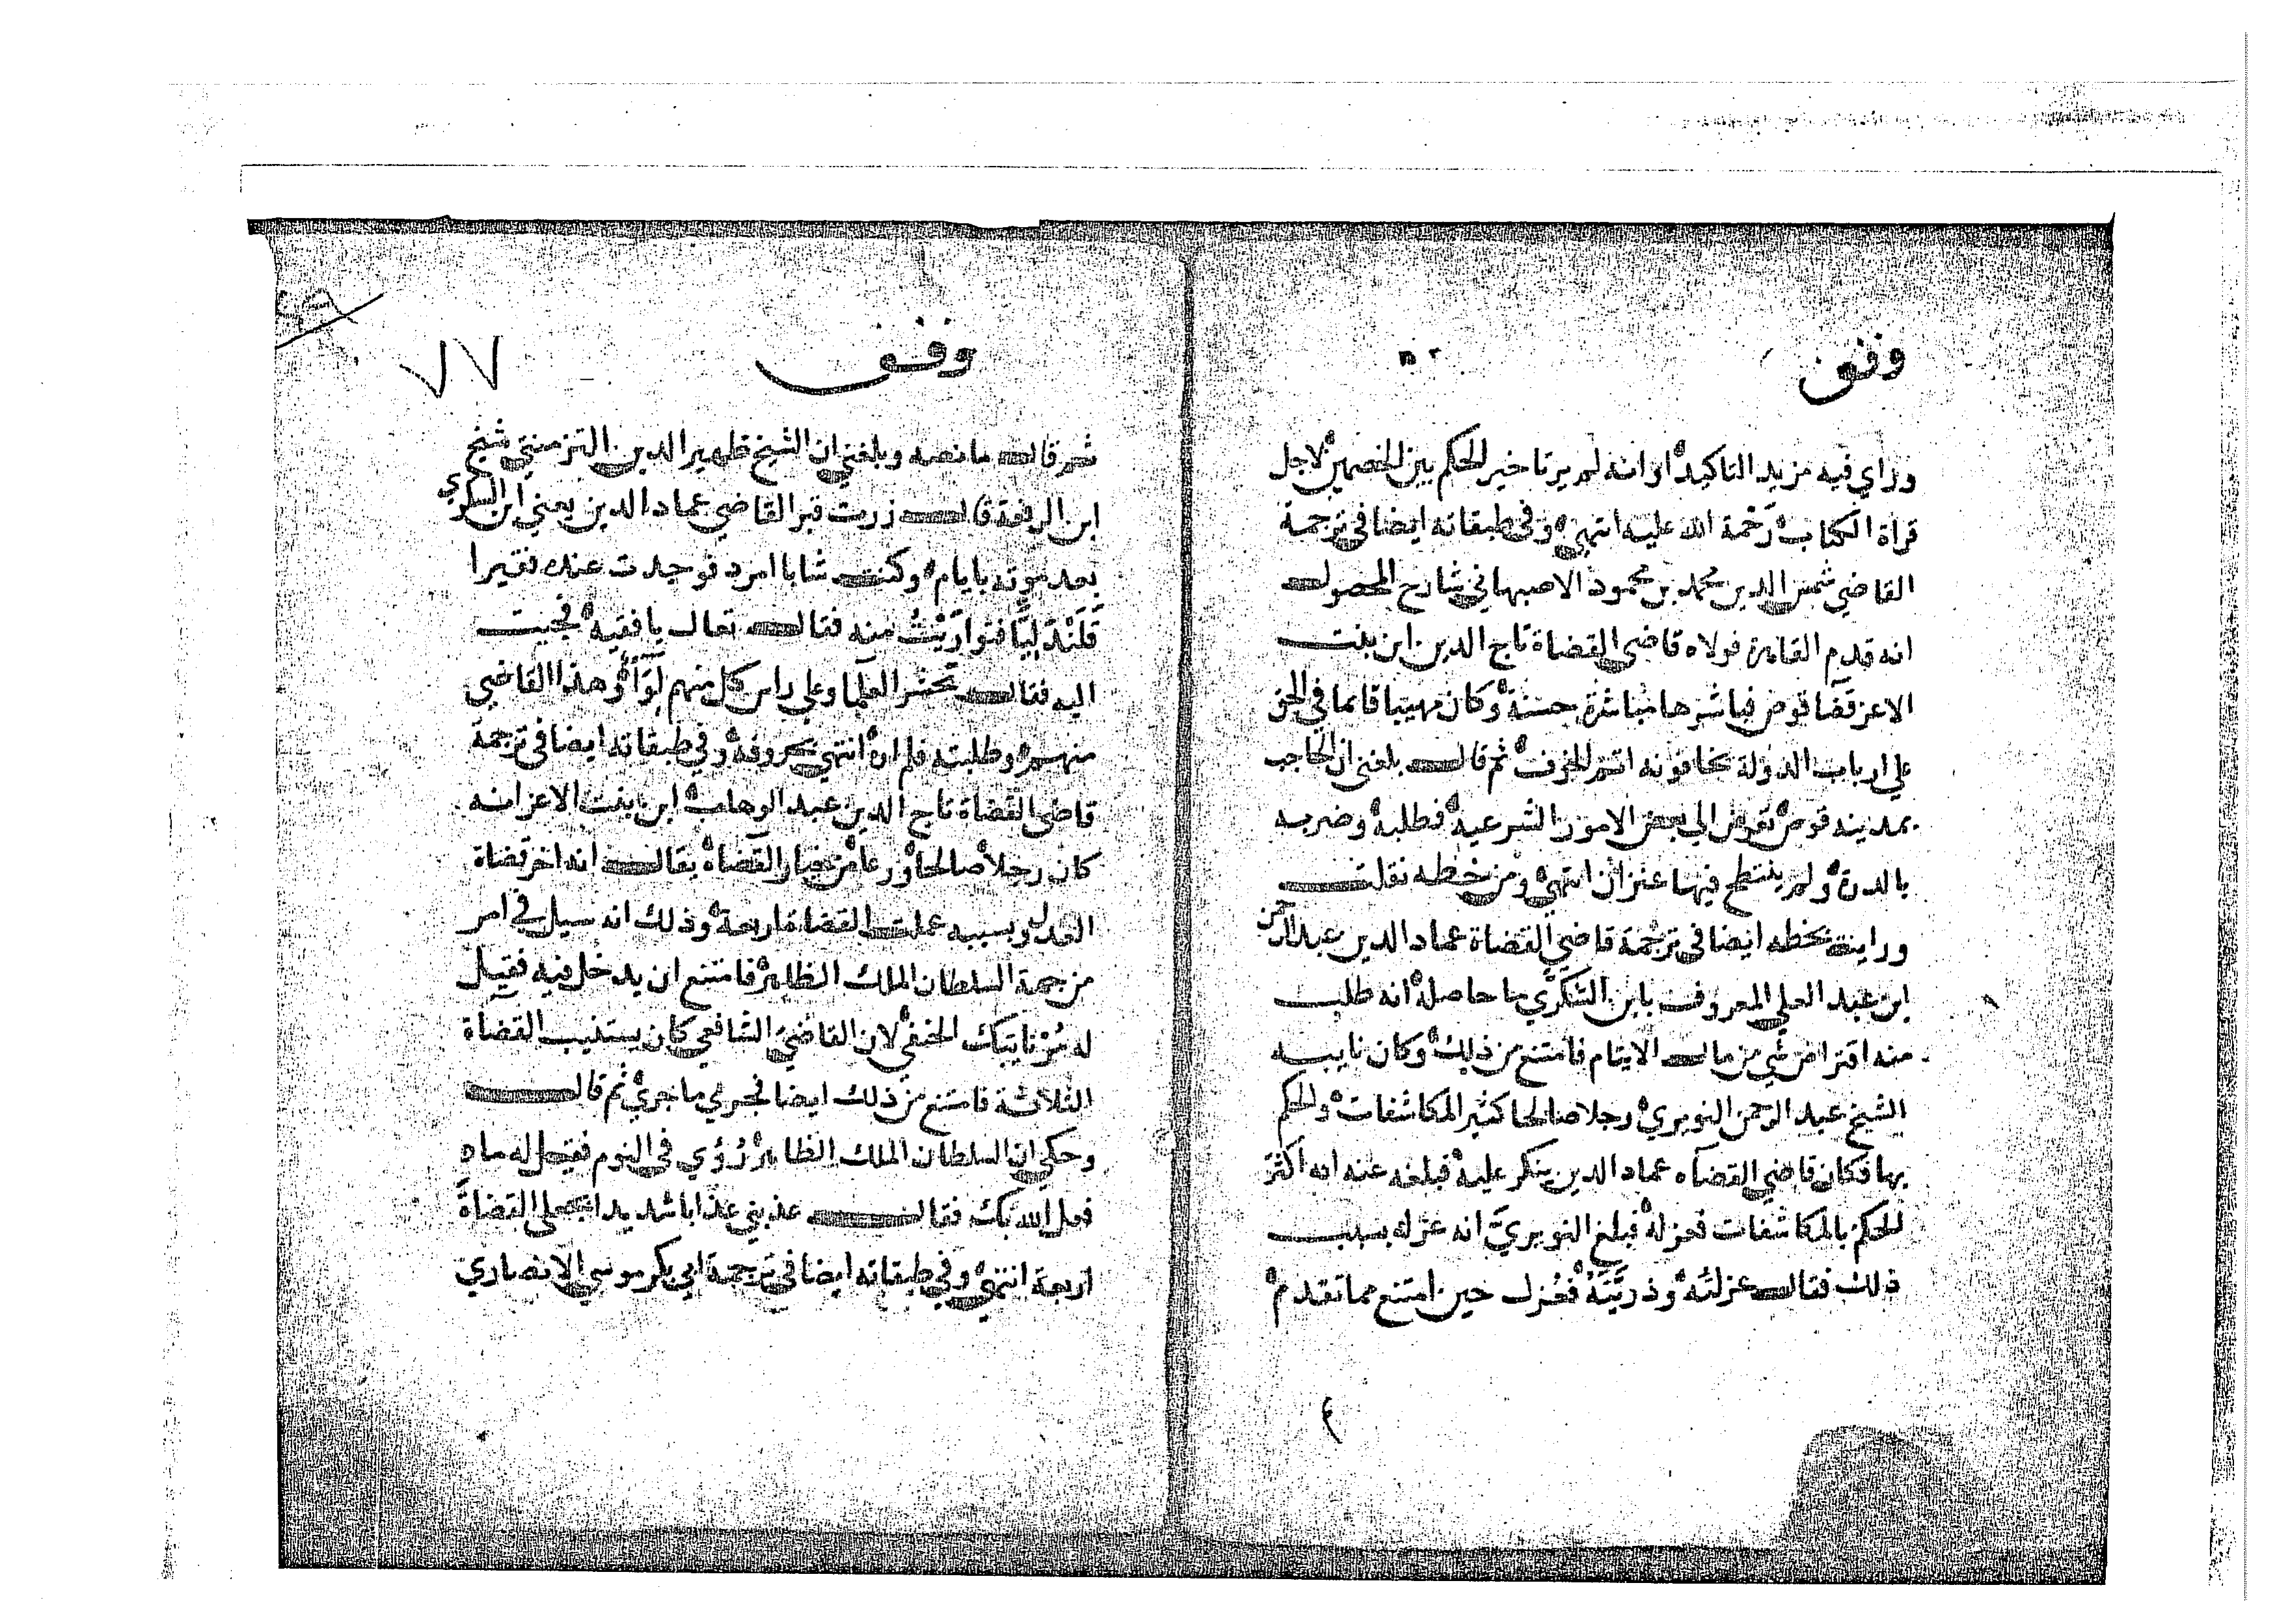 وقف
وراي فيه مزيد التاكيد او انه لم ير تاخير الحكم بين الخصمين لاجل
قراة الكتاب رَحْمة الله عليه انتهي وفي طبقاته ايضا في ترجمة
القاضي شمس الدين محمد بن محمود الاصبهاني شارح المحصول
انه قدم القاهرة فولاه قاضي القضاة تاج الدين ابن بنت
الاعز قضا قوص فباشرها مباشرة حسنة وكان مهيبا قايما في الحق
علي ارباب الدولة يخافونه اتم الخوف ثم قال بلغني ان الحاجب
بمدينه قوص تعرض الي بعض الامور الشرعية فطلبه وضربه
بالدرة ولم ينتطح فيها عنزان انتهي ومن خطه نقلت
ورايت بخطه ايضا في ترجمة قاضي القضاة عماد الدين عبد الرحمن
ابن عبد العلي المعروف بابن السُّكَّرِّي ما حاصله انه طلب
منه اقتراض شي من مال الايتام فامتنع من ذلك وكان نايبه
الشيخ عبد الرحمن النويري رجلا صالحا كثير المكاشفات والحكم
بها فكان قاضي القضاه عماد الدين ينكر عليه فبلغه عنه انه اكثر
الحكم بالمكاشفات فعزله فبلغ النويريَّ انه عزله بسبب
ذلك فقال عزلتُه وذريَّتَهُ فعُزل حين امتنع مما تقدم
٤
وقف
١٧
ثم قال ما نصه وبلغني ان الشيخ ظهير الدين التزمنتي شيخ
ابن الرفعة قال زرت قبر القاضي عماد الدين يعني ابن السكري
بعد موته بايام وكنت شابا امرد فوجدت عنده فقيرا
قَلَنْدَرِيًّا فتوارَيْتُ منه فقال تعال يا فقيه فجيت
اليه فقال تحشر العلما وعلي راس كل منهم لِوَآءٌ وهذا القاضي
منهم وطلبته فلم اره انتهي بحروفه وفي طبقاته ايضا في ترجمة
قاضي القضاة تاج الدين عبد الوهاب ابن بنت الاعز انه
كان رجلا صالحا ورعا من خيار القضاه يقال انه اخر قضاة
العدل وبسببه عملت القضاة اربعة وذلك انه سيل في امر
من جهة السلطان الملك الظاهر فامتنع ان يدخل فيه فقيل
له مُرْ نايبَك الحنفي لان القاضي الشافعي كان يستنيب القضاة
الثلاثة فامتنع من ذلك ايضا فجري ما جري ثم قال
وحكي ان السلطان الملك الظاهر رُؤي في النوم فقيل له ماه
فعل الله بك فقال عذبني عذابا شديدا بجعلي القضاة
اربعة انتهي وفي طبقاته ايضا في ترجمة ابي بكر موسي الانصاري